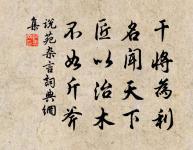 干將為利
名聞天下
匠以治木
不如斤斧
說苑雜言詞典網
集